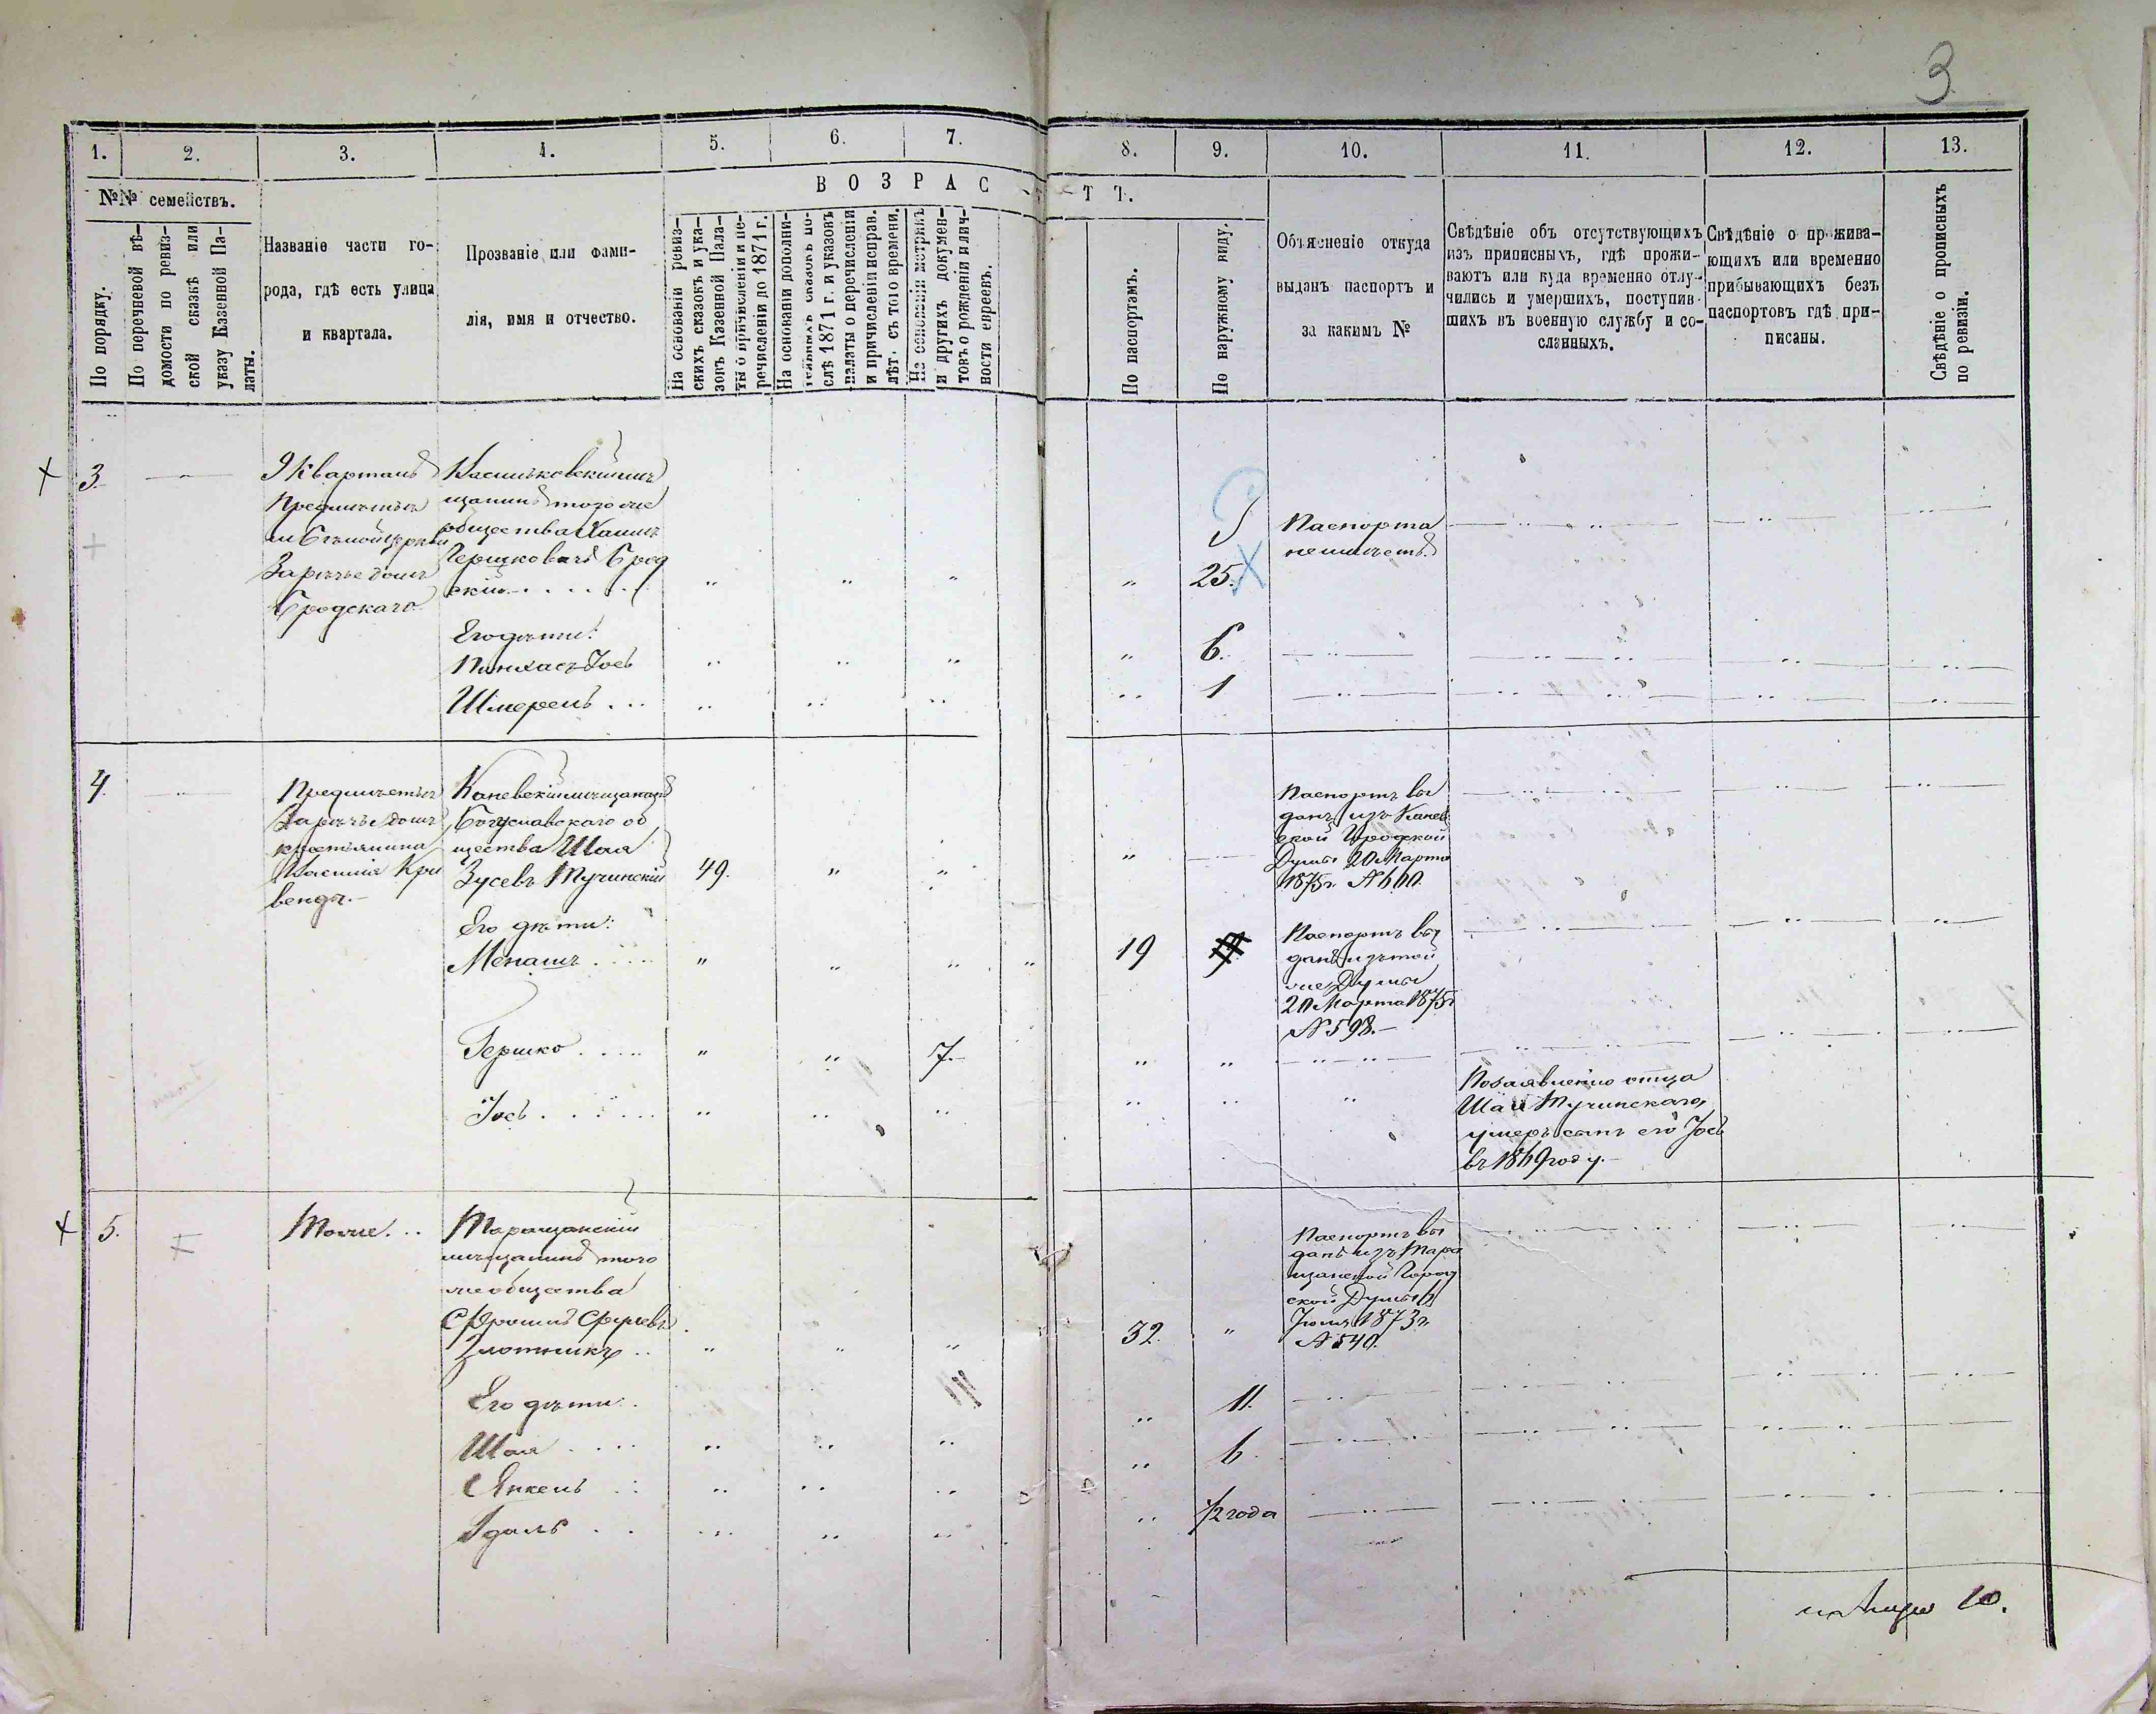 3
1. 2. 3. 4. 5. 6. 7. 8. 9. 10. 11. 12. 13.
№№ семействъ.
В О З Р А С Т Ъ.
По порядку.
По перечневой вѣ-
домости по ревиз-
ской сказкѣ или
указу Казенной Па-
латы.
Названіе части го-
рода, гдѣ есть улица
и квартала.
Прозваніе или фами-
лія, имя и отчество.
На основаніи ревиз-
скихъ сказокъ и ука-
зовъ Казенной Пала-
ты о причисленіи и пе-
речисленіи до 1871 г.
На основаніи дополни-
тельныхъ сказокъ по-
слѣ 1871 г. и указовъ
палаты о перечисленіи
и причисленіи исправ.
лѣт. съ того времени.
На основаніи метрикъ
и другихъ докумен-
товъ о рожденіи и лич-
ности евреевъ.
По паспортамъ.
По наружному виду.
Объясненіе откуда
выданъ паспортъ и
за какимъ №
Свѣдѣніе объ отсутствующихъ
изъ приписныхъ, гдѣ прожи-
ваютъ или куда временно отлу-
чились и умершихъ, поступив-
шихъ въ военную службу и со-
сланныхъ.
Свѣдѣніе о прожива-
ющихъ или временно
прибывающихъ безъ
паспортовъ гдѣ при-
писаны.
Свѣдѣніе о прописныхъ
по ревизіи.
3.
9 Кварталъ
Предмѣстье
Зарѣчье домъ
Бродскаго
Васильковскій мѣ
щанинъ того же
общества Хаимъ
Гершковичъ Брод
скій
25.
Паспорта
неимѣетъ.
Его дѣти:
Пинхасъ Іось
6.
Шмерель
1
4.
Предмѣстье
Зарѣчье домъ
крестьянина
Василія Кри
венды.
Каневскій мѣщанинъ
Богуславскаго об
щества Шая
Зусевъ Тучинскій
49.
Паспортъ вы
данъ изъ Канев
ской Городской
Думы 20 Марта
1875 г. № 600.
Его дѣти:
Менаше
19
Паспортъ вы
данъ изъ той
же Думы
20 Марта 1875 г.
№ 598.
Гершко
7.
Іось
По заявленію отца
Шаи Тучинскаго,
умеръ сынъ его Іось
въ 1869 году.
5.
Тоже
Таращанскій
мѣщанинъ того
же общества
Сфроимъ
Злотникъ
32.
Паспортъ вы
данъ изъ Тара
щанской Город
ской Думы
Іюля 1873 г.
№ 540.
Его дѣти
11.
Шая
6
Янкель
1/2 года
Удаль
10.